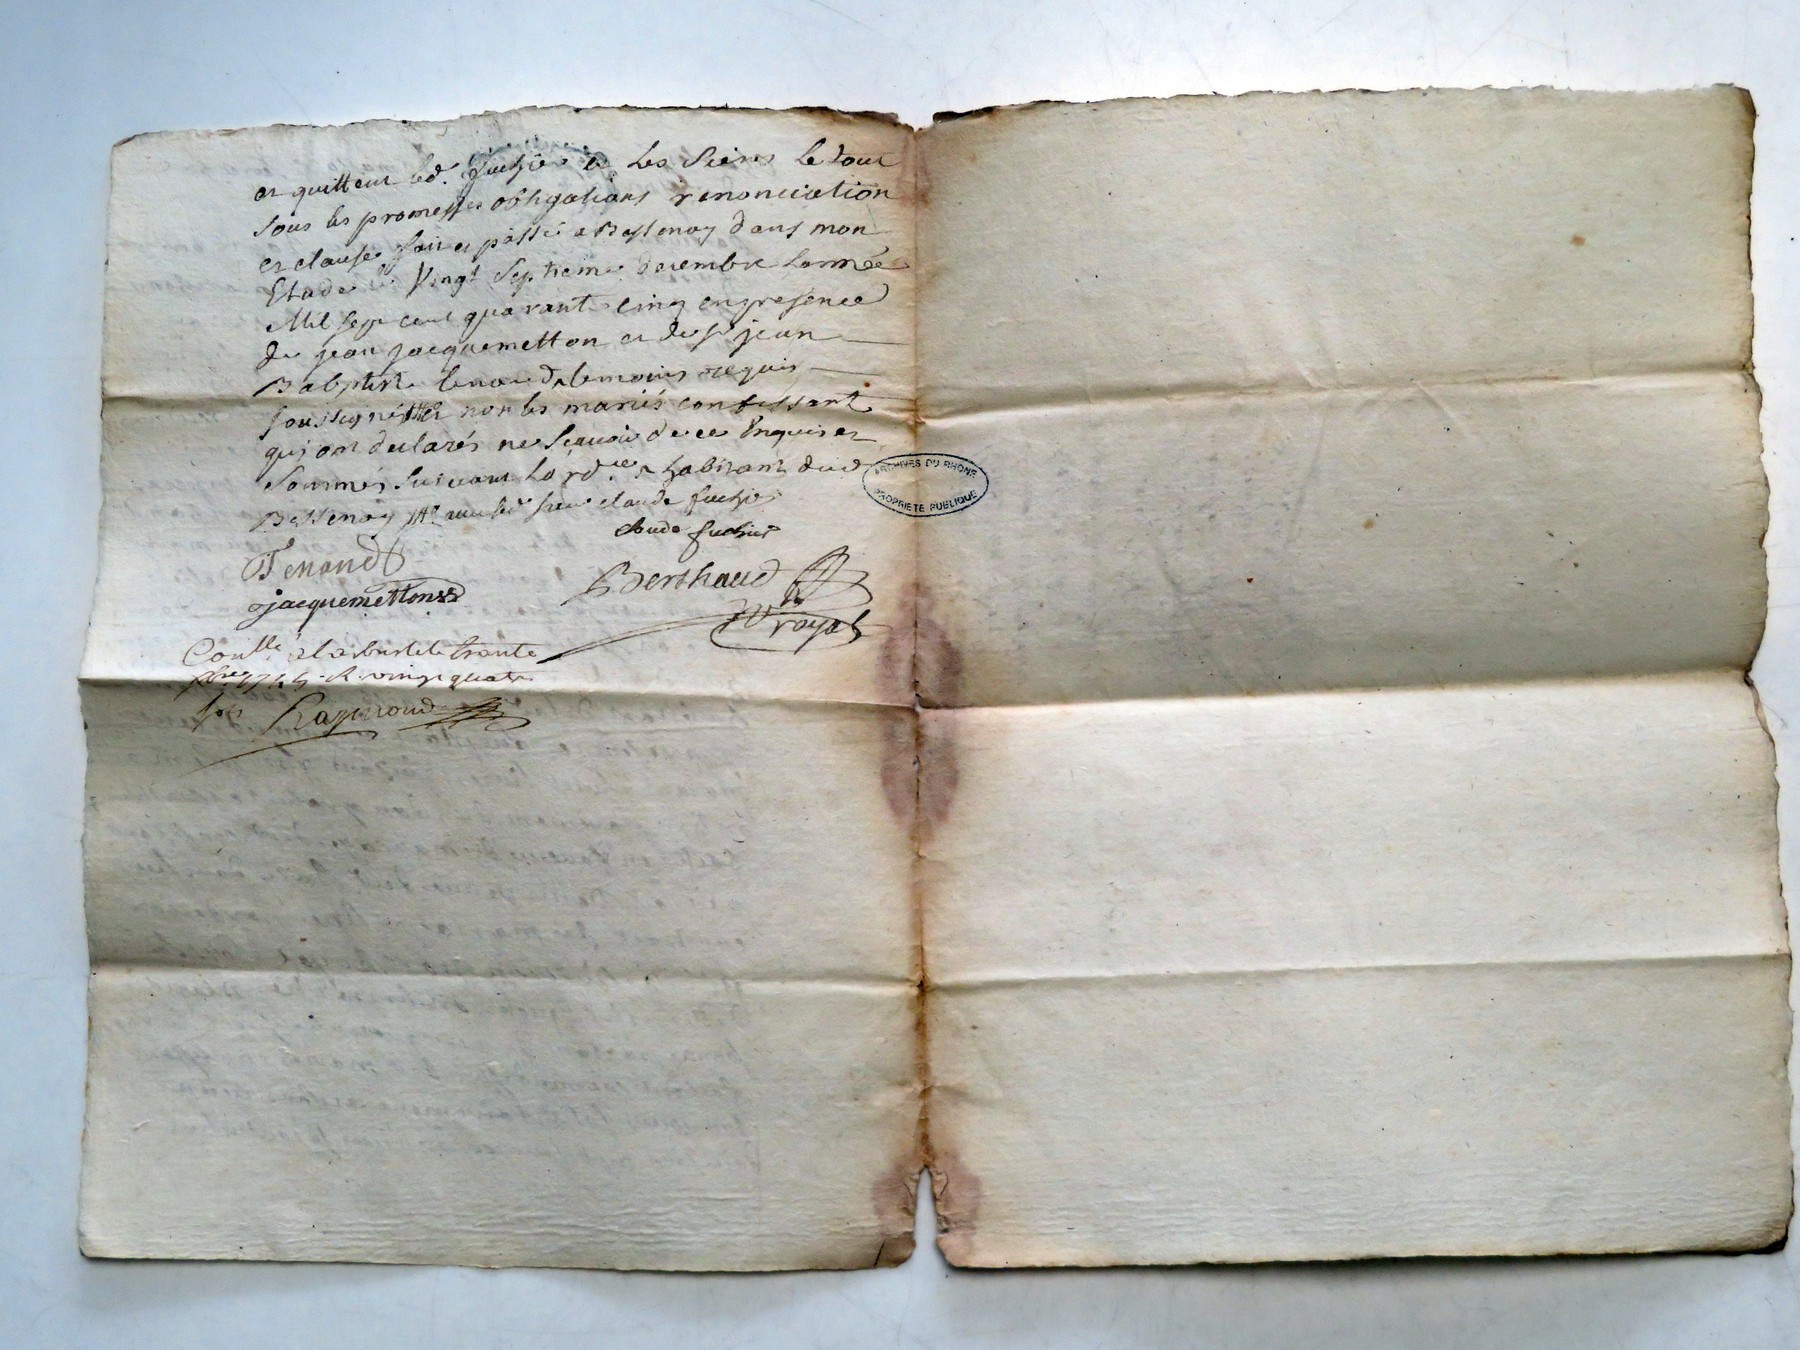 et quittent led. fuchier et les siens le tout
sous les promesses obligations renonciation
et clauses fait et passé a Bessenay dans mon
Etude le Vingt septieme decembre Lannée
Mil sept cent quarante cinq en presence
de jean jacquemetton et de sr jean
Baptiste tenaud temoins requis
soussignés et non les mariés confessant
qui ont declarés ne scavoir de ce Enquis et
sommés suivant Lord.ce habitant dud
Bessenay avec led. sieur claude fuchier
claude fuchier
Tenaud
Berthaud
jacquemetton
N royal
Coullé a Larbresle le trante
xbre 1745 R vingt quatre
sols Raymond
ARCHIVES DU RHONE
PROPRIETE PUBLIQUE